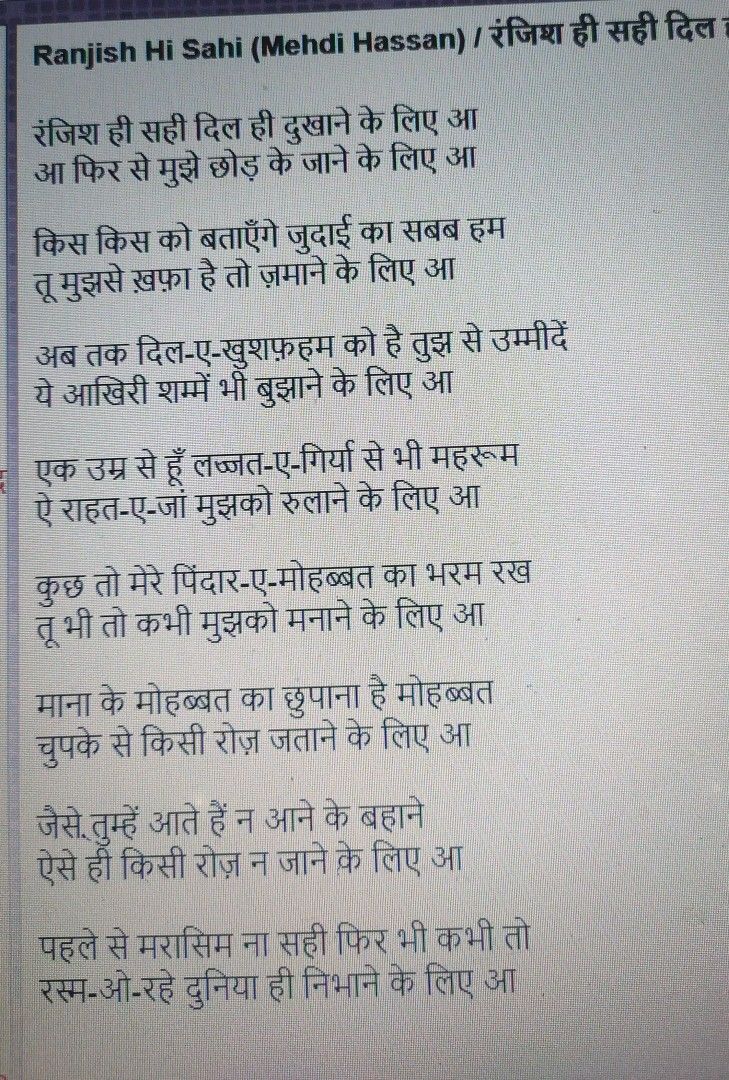 Ranjish Hi Sahi (Mehdi Hassan) / रंजिश ही सही दिल
रंजिश ही सही दिल ही दुखाने के लिए आ
आ फिर से मुझे छोड़ के जाने के लिए आ
किस किस को बताएँगे जुदाई का सबब हम
तू मुझसे ख़फ़ा है तो ज़माने के लिए आ
अब तक दिल-ए-खुशफ़हम को है तुझ से उम्मीदें
ये आखिरी शम्में भी बुझाने के लिए आ
एक उम्र से हूँ लज्जत-ए-गिर्या से भी महरूम
ऐ राहत-ए-जां मुझको रुलाने के लिए आ
कुछ तो मेरे पिंदार-ए-मोहब्बत का भरम रख
तू भी तो कभी मुझको मनाने के लिए आ
माना के मोहब्बत का छुपाना है मोहब्बत
चुपके से किसी रोज़ जताने के लिए आ
जैसे तुम्हें आते हैं न आने के बहाने
ऐसे ही किसी रोज़ न जाने के लिए आ
पहले से मरासिम ना सही फिर भी कभी तो
रस्म-ओ-रहे दुनिया ही निभाने के लिए आ